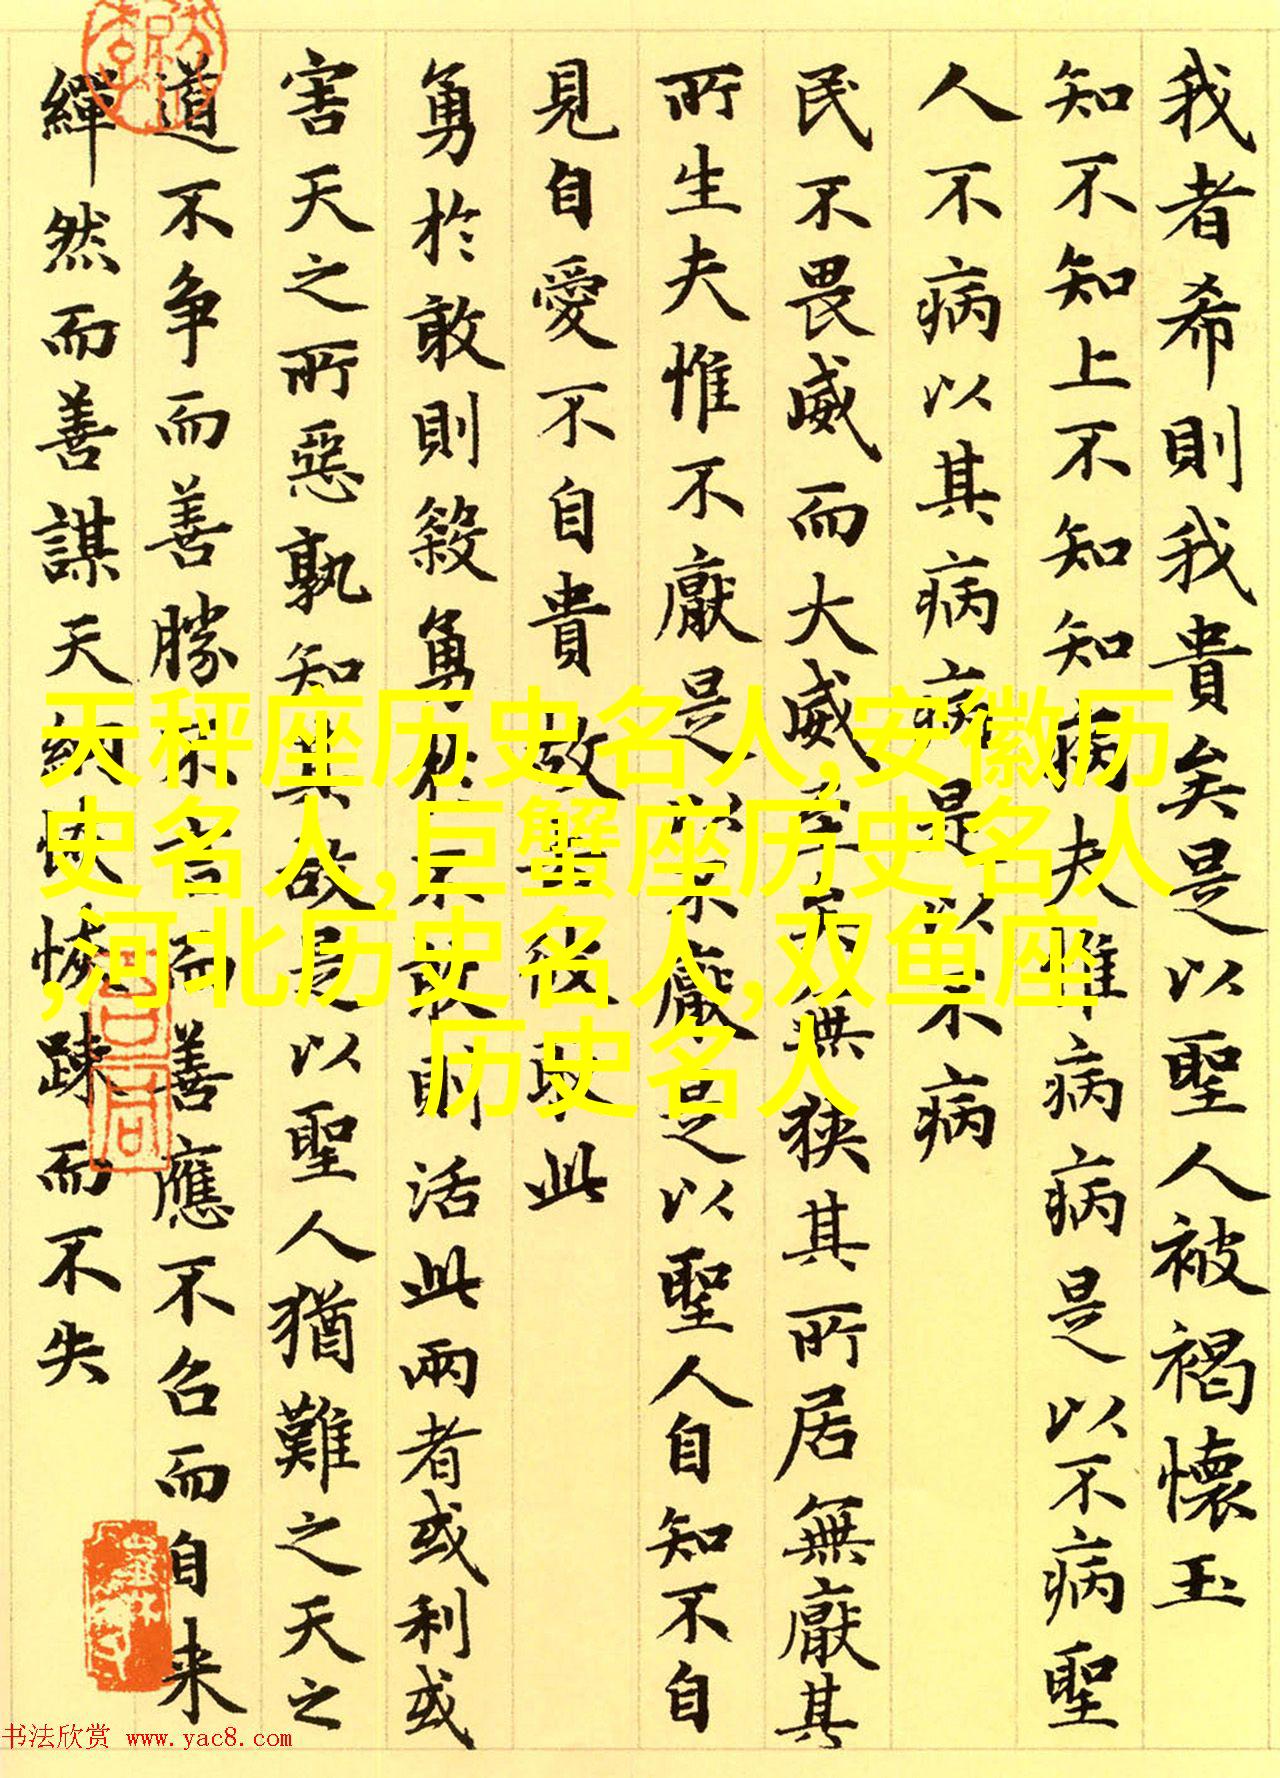 我者希則我貴矣是以聖人被褐懷玉
知不知上不知知病夫惟病病是以不病聖
人不病以其病病是以不病
民不畏威而大威至矣無狹其所居無厭其
所生夫惟不厭是以不厭是以聖人自知不自
見自愛不自貴故去彼取此
勇於敢則殺勇於不敢則活此兩者或利或
害天之所惡孰知其故是以聖人猶難之天之
道不争而善勝不言而善應不召而自来
繟然而善謀天網恢恢踈而不失
天秤座历史名人,安徽历
史名人,巨蟹座历史名人
,河北历史名人,双鱼座
历史名人
书法欣赏 www.yac8.com